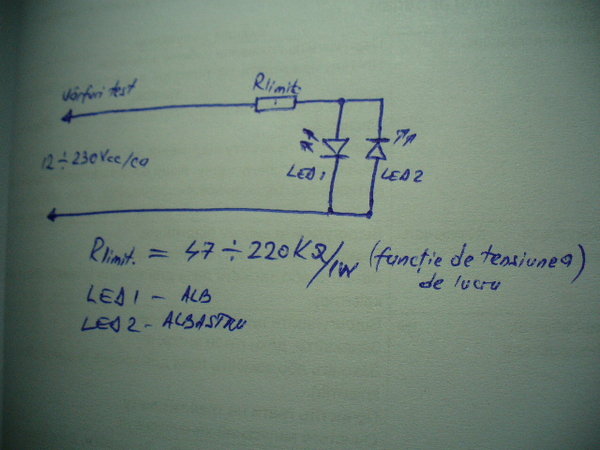 Vârfuri test
Rlimit.
12 ÷ 230Vcc/ca
LED1
LED2
Rlimit. = 47 ÷ 220KΩ/1W (funcție de tensiunea)
de lucru
LED1 - ALB
LED2 - ALBASTRU